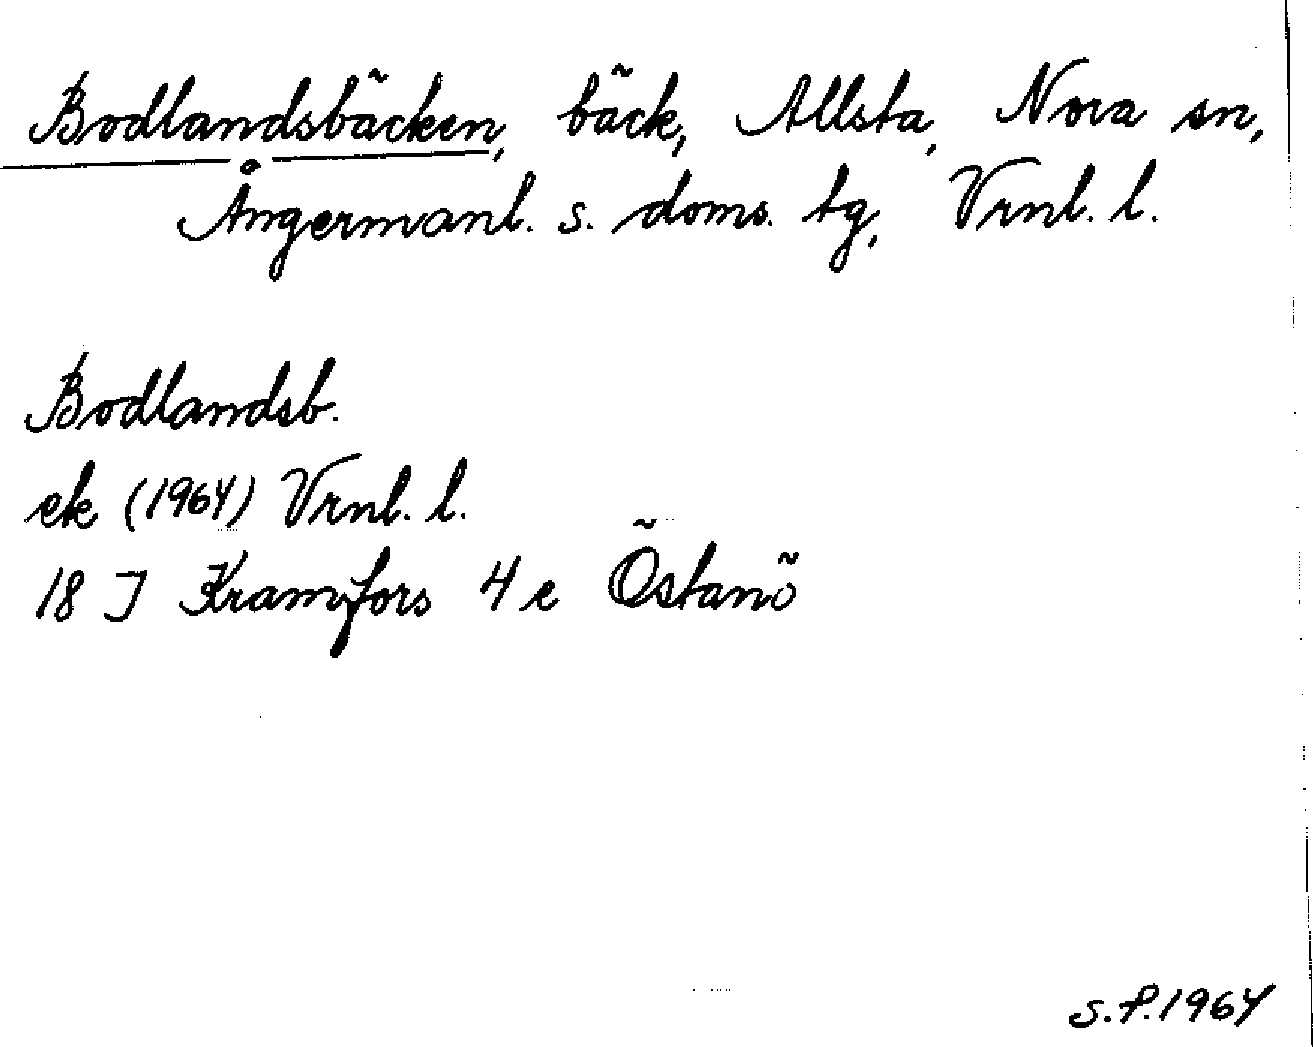 Bodlandsbäcken, bäck, Allsta, Nora sn,
Ångermanl. s. doms. tg, Vrnl. l.
Bodlandsb.
ek (1964) Vrnl. l.
18 J Kramfors 4 e Östanö
S.P.1964